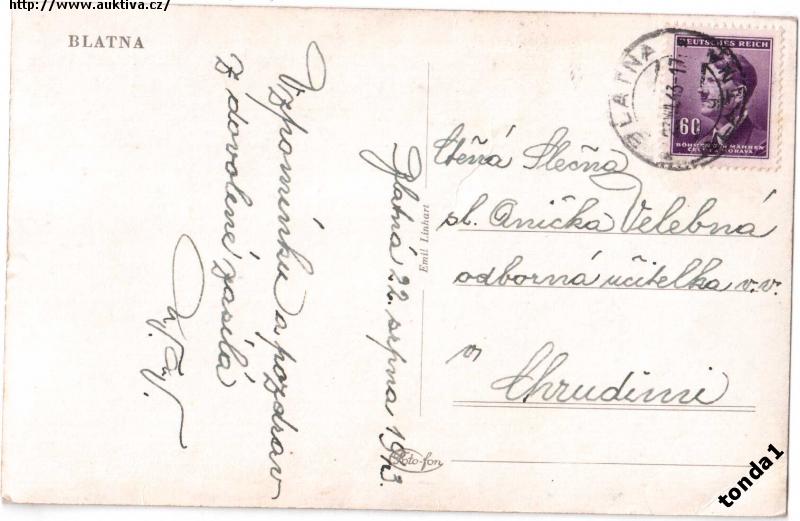 http://www.auktiva.cz/
BLATNA
Vzpomínku a pozdrav
z dovolené zasílá
Blatná 22. srpna 1943.
Emil Linhart
Foto-fon
BLATNA
DEUTSCHES REICH
60
BÖHMEN UND MÄHREN
ČECHY A MORAVA
Ctěná Slečna
sl. Anička Velebná
odborná učitelka v.v.
v
Chrudimi
tonda1